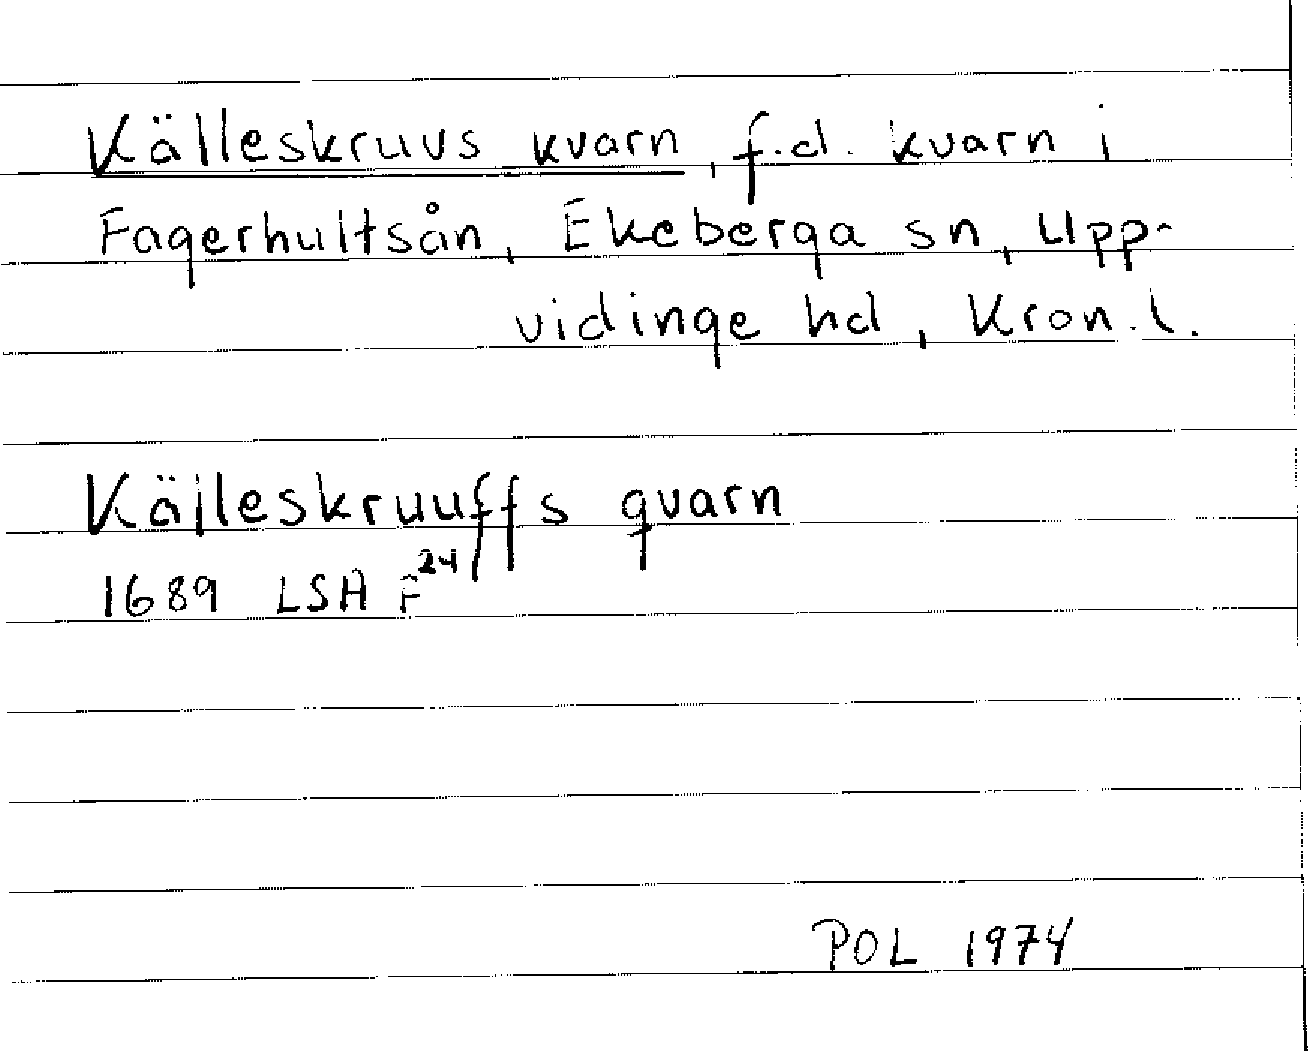 Källeskruvs kvarn, f.d. kvarn i
Fagerhultsån, Ekeberga sn, Upp-
vidinge hd, Kron. l.
Källeskruuffs qvarn
1689 LSA F24
POL 1974